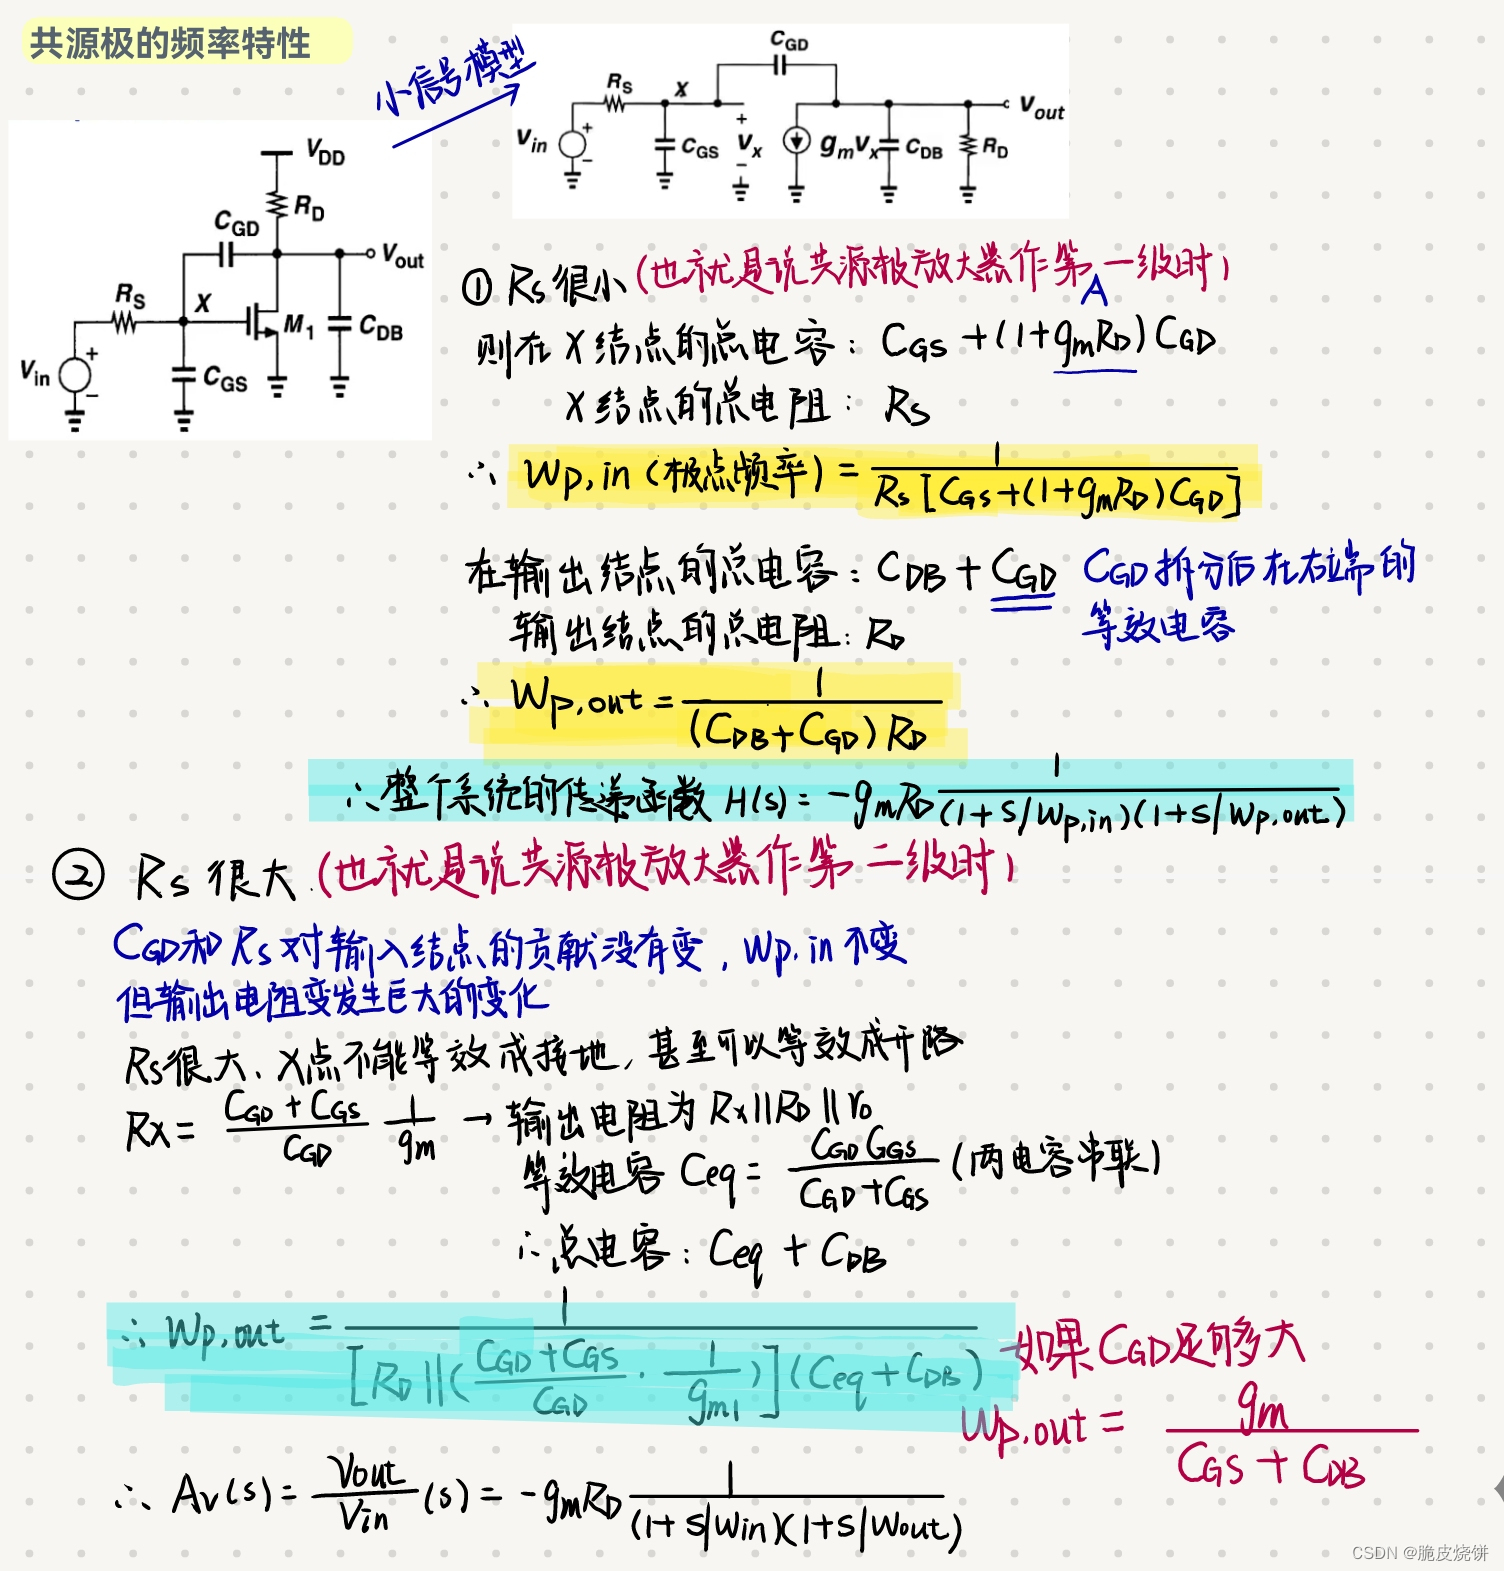 共源极的频率特性
小信号模型
V_DD
R_D
C_GD
V_out
R_S
X
M_1
C_DB
V_in
+
−
C_GS
C_GD
R_S
X
V_out
V_in
+
−
C_GS
+
V_X
−
g_m V_X
C_DB
R_D
① Rs很小(也就是说共源极放大器作第一级时)
A
则在X结点的总电容: C_GS + (1+g_mR_D)C_GD
X结点的总电阻: Rs
∴ Wp,in (极点频率) = 1 / Rs[C_GS+(1+g_mR_D)C_GD]
在输出结点的总电容: C_DB + C_GD C_GD拆分后在右端的
等效电容
输出结点的总电阻: R_D
∴ Wp,out = 1 / (C_DB+C_GD)R_D
∴ 整个系统的传递函数 H(s) = -g_mR_D 1 / (1+S/Wp,in)(1+S/Wp,out)
② Rs 很大.(也就是说共源极放大器作第二级时)
C_GD和Rs对输入结点的贡献没有变, Wp.in不变
但输出电阻变发生巨大的变化
Rs很大、X点不能等效成接地, 甚至可以等效成开路
Rx = (C_GD + C_GS)/C_GD 1/g_m → 输出电阻为 Rx||R_D||r_o
等效电容 Ceq = C_GD G_GS / (C_GD + C_GS) (两电容串联)
∴ 总电容: Ceq + C_DB
∴ Wp,out = 1 / [R_D||((C_GD+C_GS)/C_GD · 1/g_m1)](Ceq+C_DB) 如果C_GD足够大
Wp,out = g_m / (C_GS + C_DB)
∴ Av(s) = Vout/Vin (s) = -g_mR_D 1 / (1+S/Win)(1+S/Wout)
CSDN @脆皮烧饼